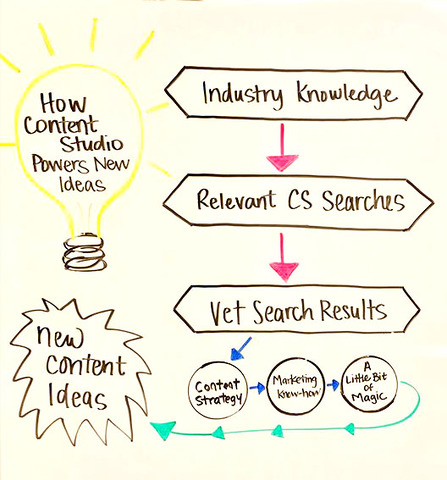 How
Content
Studio
Powers New
Ideas
Industry Knowledge
Relevant CS Searches
Vet Search Results
Content
Strategy
Marketing
Know-how
A
Little Bit
of
Magic
New
Content
Ideas